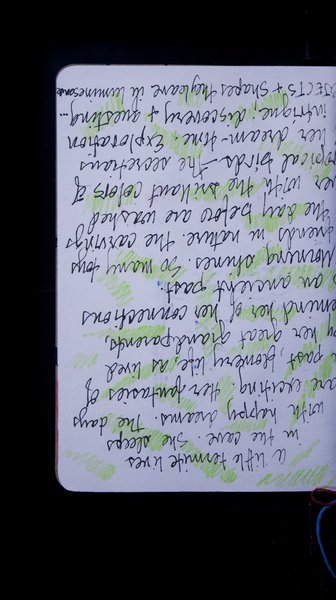 a little termite lives
in the cave. She sleeps
with happy dreams. The days
are exciting, her fantasies of
past, flowery life, as lived
by her great grandparents,
emind her of her connections
an ancient past.
Morning shines. So many toys
in nature. The carvings
the day before are washed
with the brilliant colors of
opical birds. The secretions
her dream-time: Exploration
intrigue, discovery + questing...
JECTS + shapes they leave in